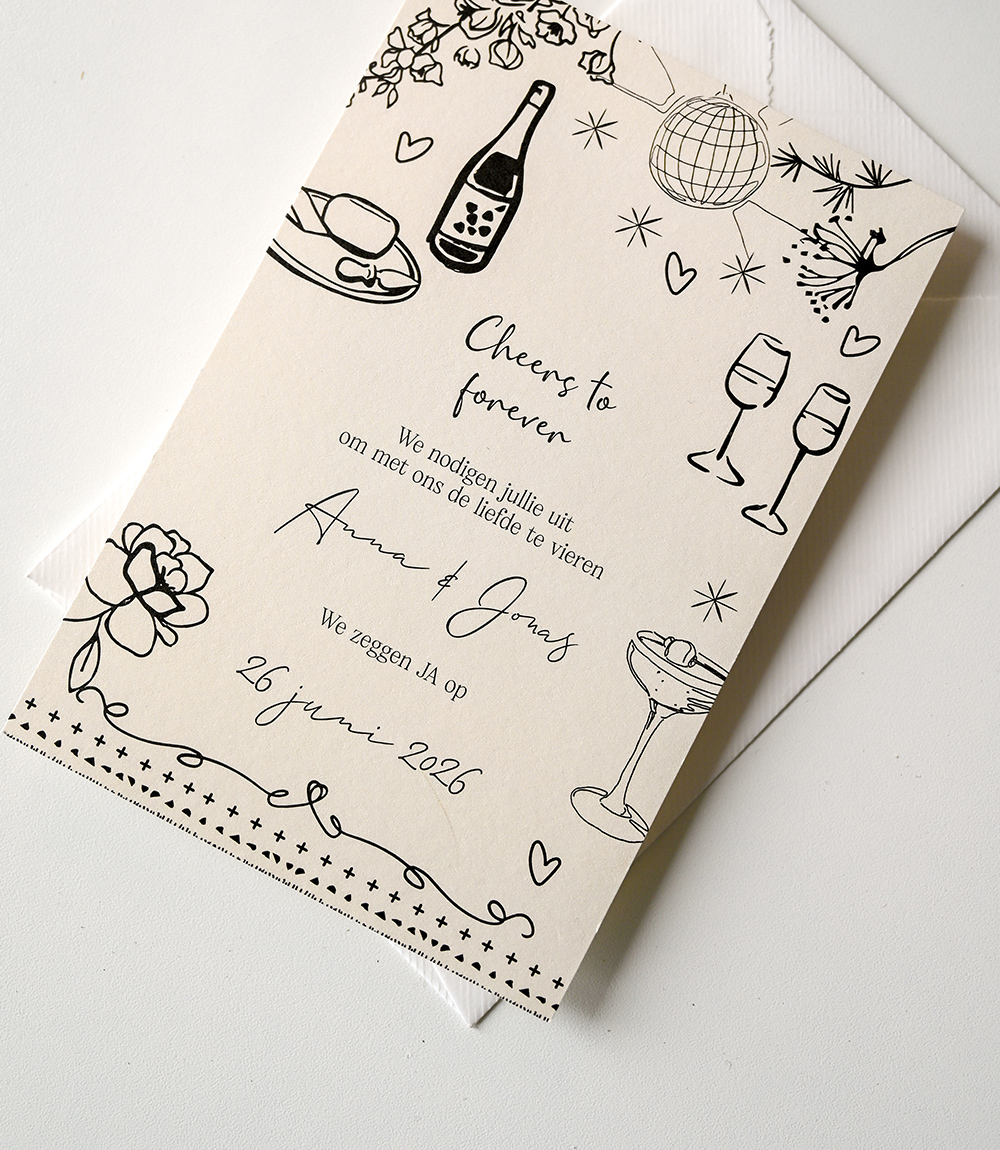 Cheers to
forever
We nodigen jullie uit
om met ons de liefde te vieren
Anna & Jonas
We zeggen JA op
26 juni 2026